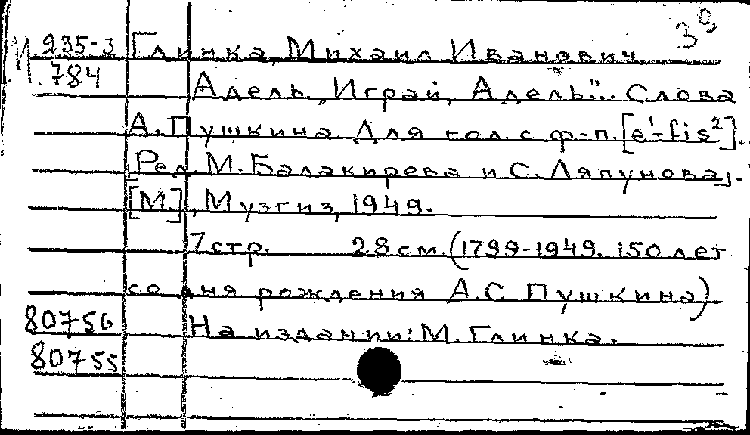 39
М 935-3 Глинка, Михаил Иванович
784
Адель. „Играй, Адель“... Слова
А. Пушкина. Для гол. с ф-п. [e¹-fis²].
[Ред. М. Балакирева и С. Ляпунова].
[М.], Музгиз, 1949.
7 стр. 28 см. (1799-1949. 150 лет
со дня рождения А.С. Пушкина)
80756 На издании: М. Глинка.
80755